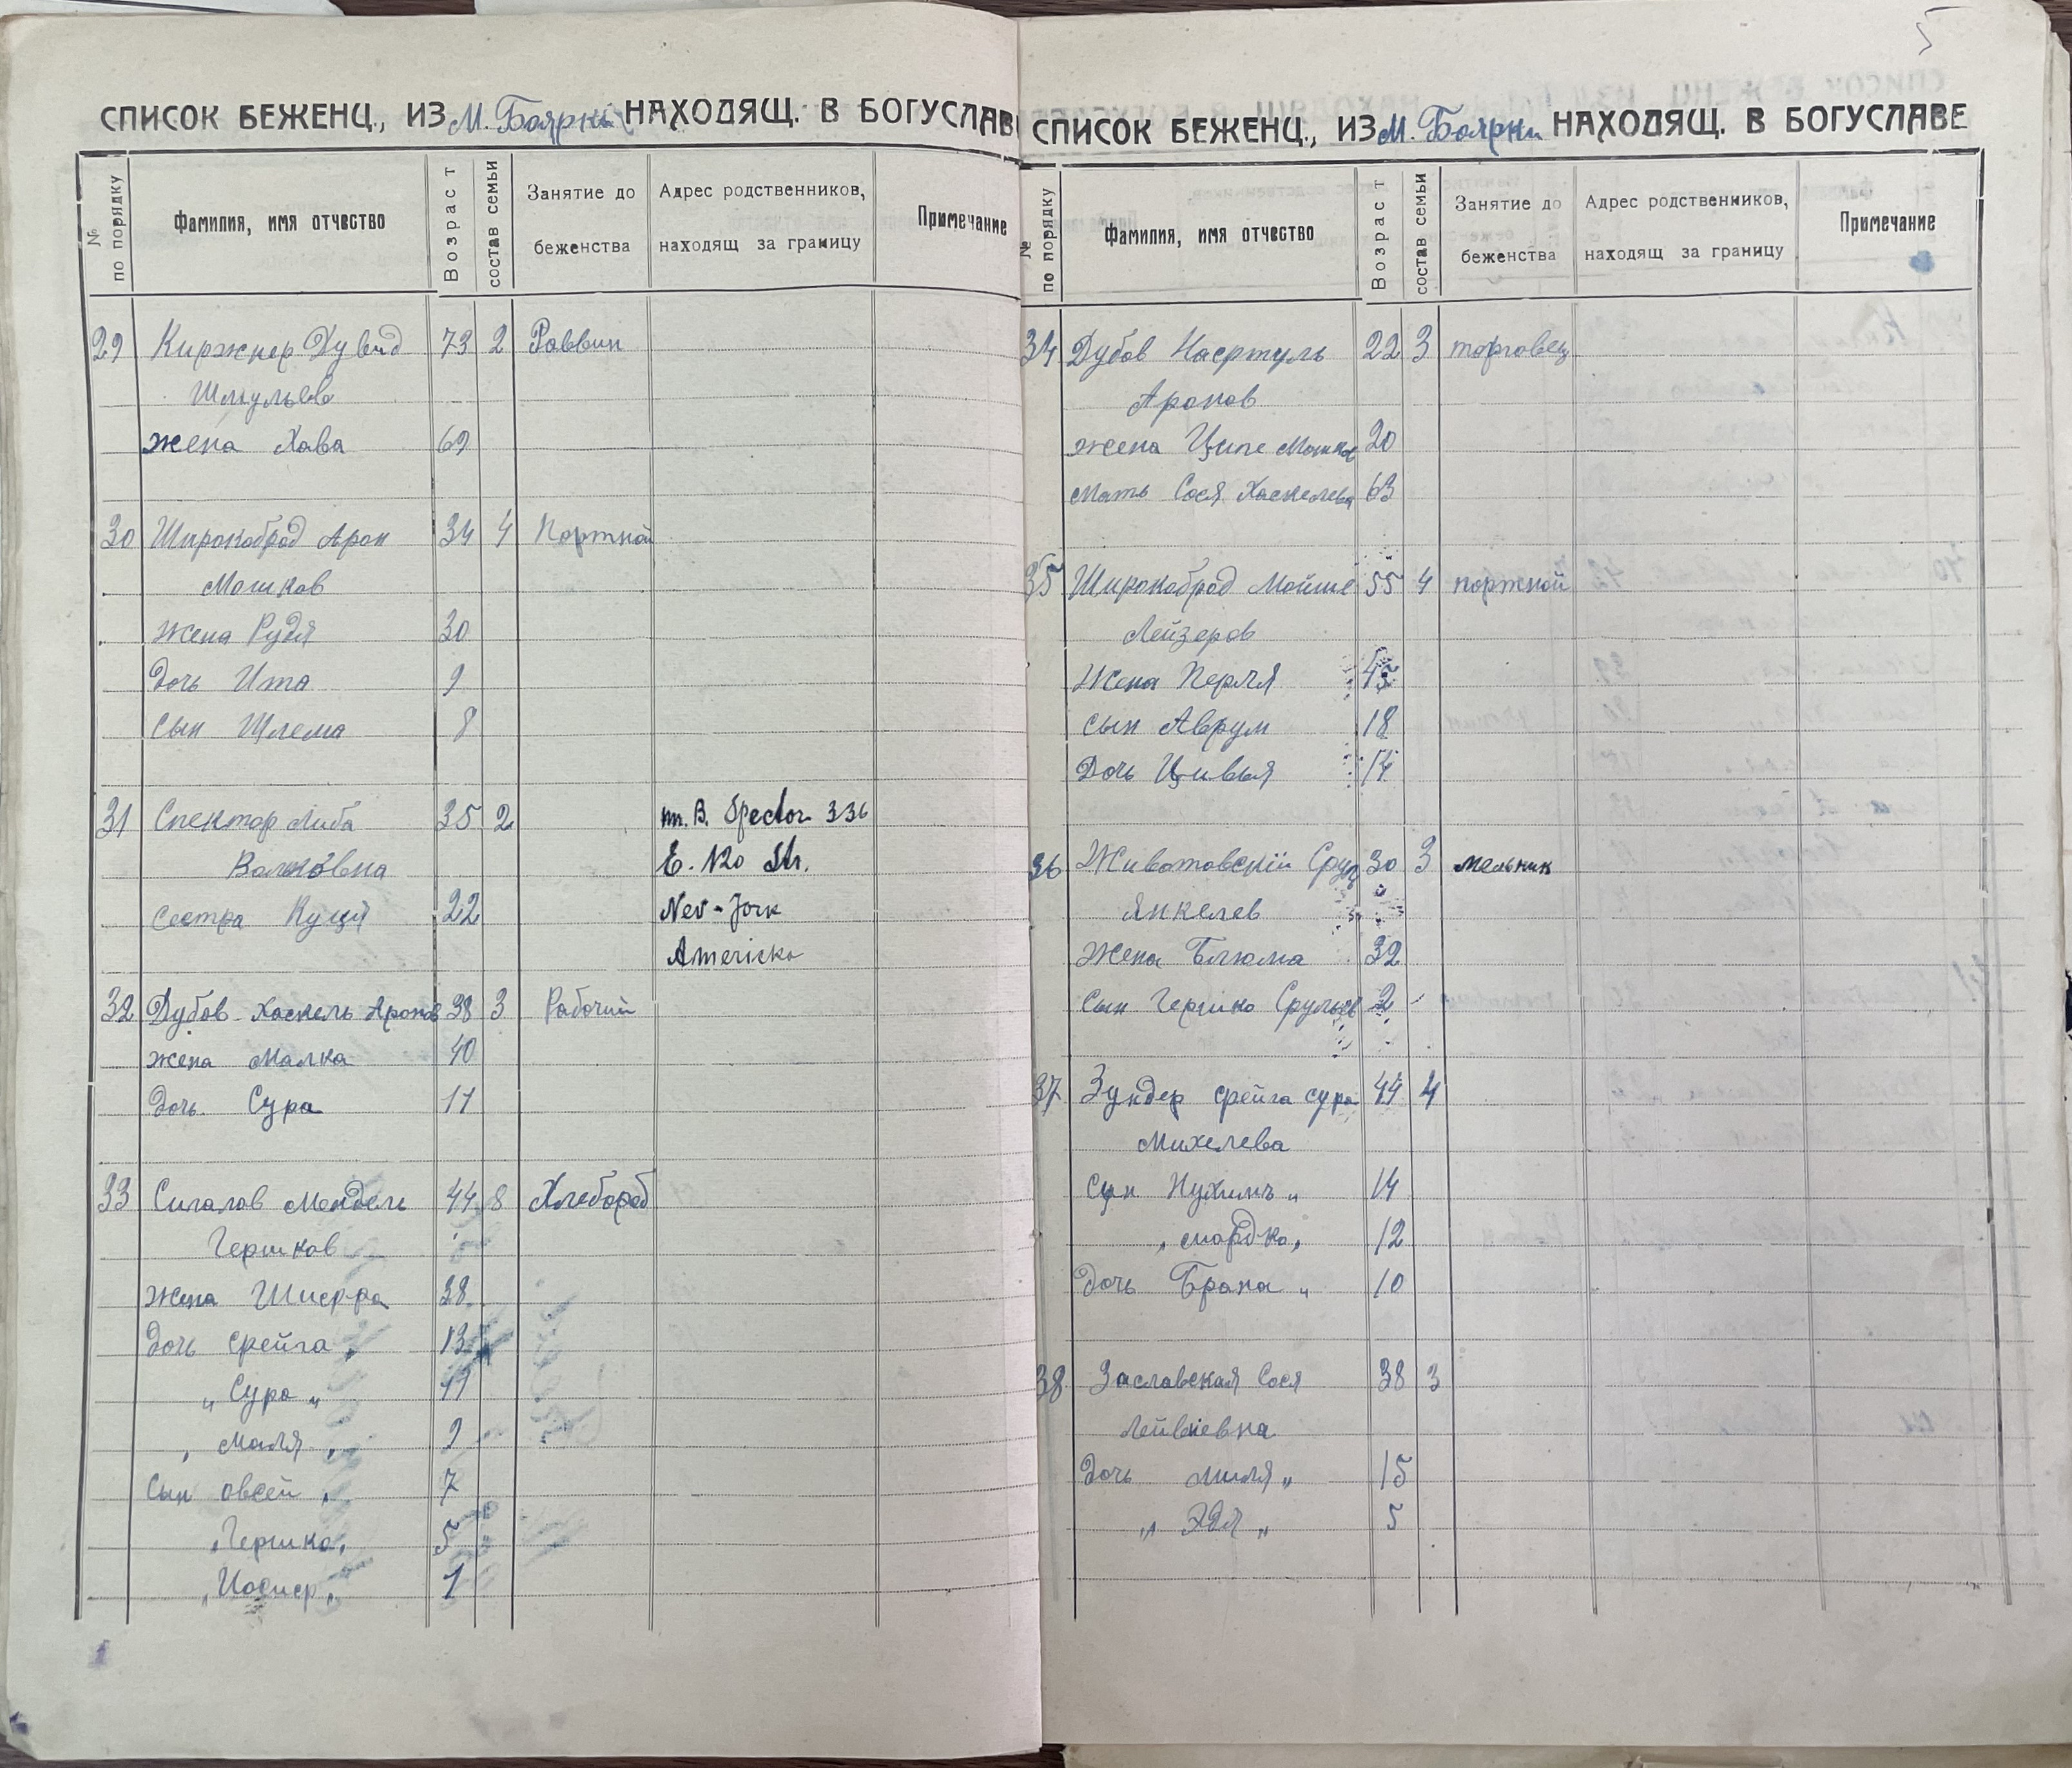 СПИСОК БЕЖЕНЦ., ИЗ м. Боярки НАХОДЯЩ. В БОГУСЛАВЕ
№ по порядку
Фамилия, имя отчество
Возраст
состав семьи
Занятие до беженства
Адрес родственников, находящ за границу
Примечание
29 Киржнер Дувид 73 2 Раввин
Шмулев
жена Хава 69
30 Широкоброд Арон 34 4 Портной
Мошков
Жена Рудя 30
Дочь Ита 9
сын Шлема 8
31 Спектор Либа 35 2 mr. B. Spector 336
Волковна E. 120 Str.
Сестра Куця 22 Nev-Jork
Americka
32 Дубов Хаскель Аронов 38 3 Рабочий
жена Малка 40
дочь Сура 11
33 Сигалов Мендель 44 8 Хлебороб
Гершков
Жена Шифра 38
Дочь Фрейга " 13
" Сура " 11
" Маля " 9
Сын Овсей " 7
" Гершко " 5
" 1
5
СПИСОК БЕЖЕНЦ., ИЗ м. Боярки НАХОДЯЩ. В БОГУСЛАВЕ
№ по порядку
Фамилия, имя отчество
Возраст
состав семьи
Занятие до беженства
Адрес родственников, находящ за границу
Примечание
34 Дубов 22 3 торговец
Аронов
жена Ципе Мошков 20
мать Сося Хаскелева 63
35 Широкоброд Мойше 55 4 портной
Лейзеров
Жена Перля 45
сын Аврум 18
Дочь Цивья 14
36 Животовскій Сруль 30 3 мельник
Янкелев
Жена Блюма 32
Сын Гершко Срульев 2
37 Зундер Фрейга Сура 44 4
Михелева
Сын Нухимъ " 14
" Мордко " 12
Дочь Брана " 10
38 Заславская Сося 38 3
Лейвиевна
Дочь Миля " 15
" Эдя " 5